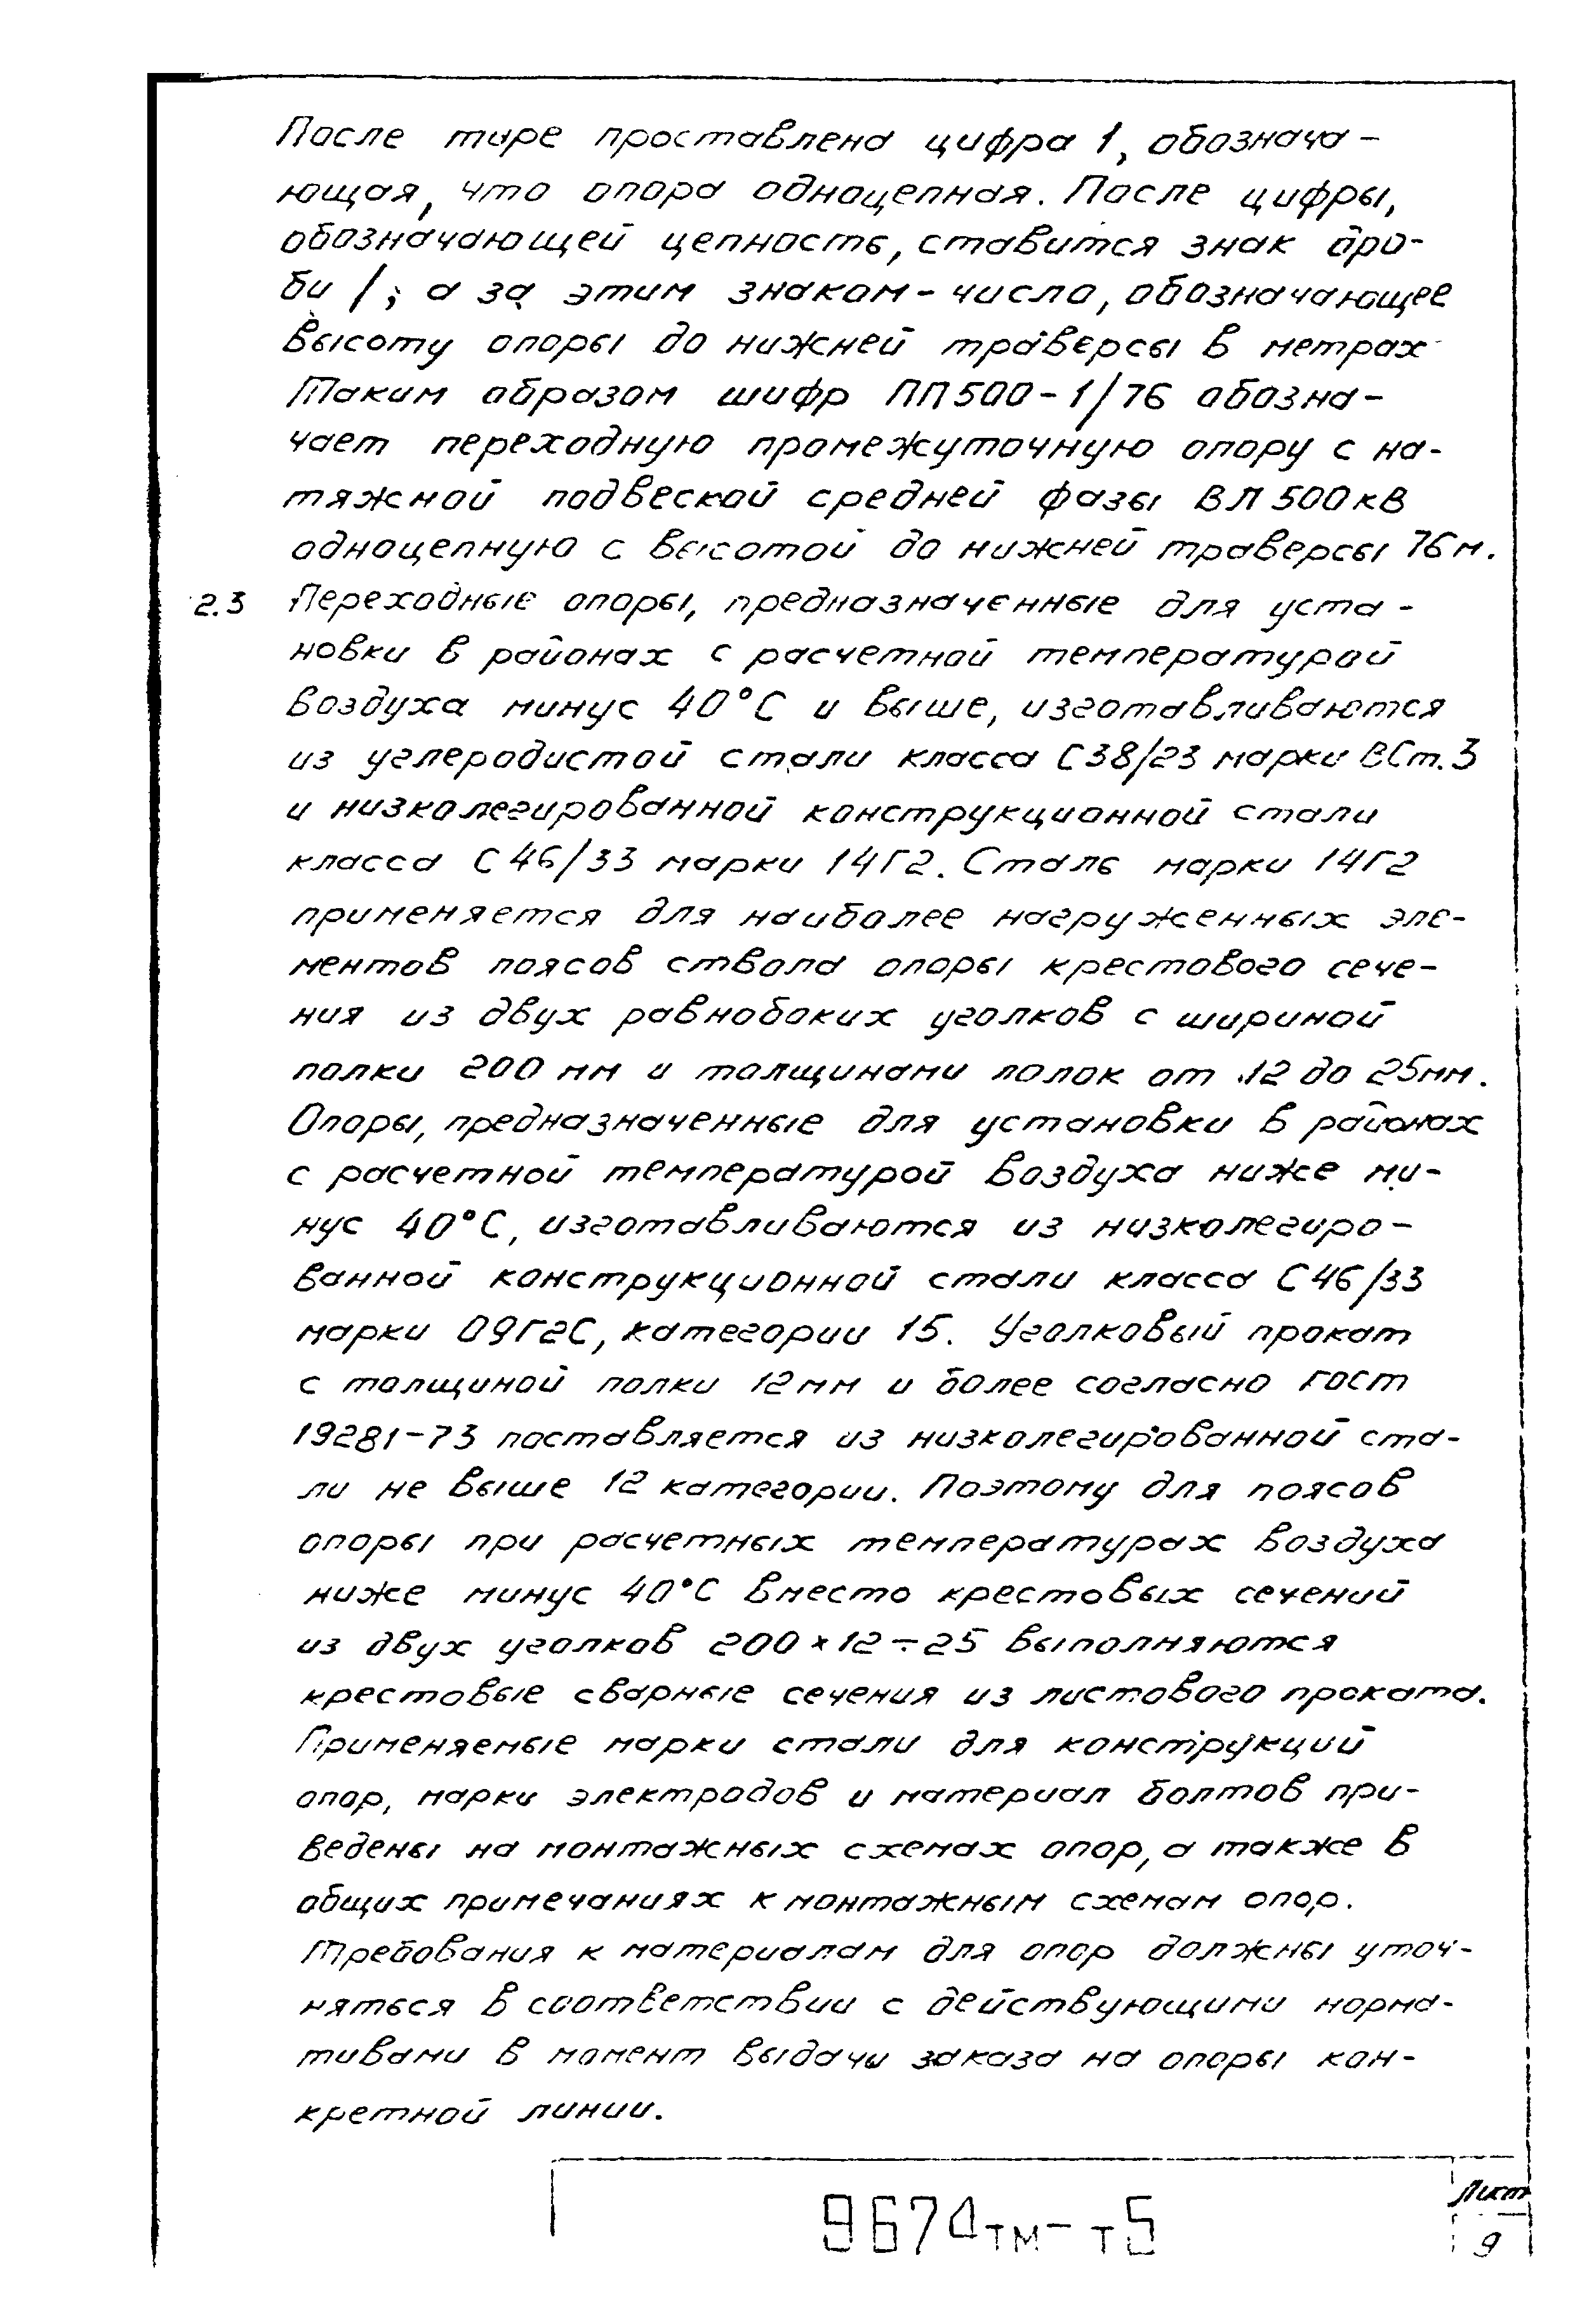 После тире проставлена цифра 1, обознача-
ющая, что опора одноцепная. После цифры,
обозначающей цепность, ставится знак дро-
би /; а за этим знаком - число, обозначающее
высоту опоры до нижней траверсы в метрах
Таким образом шифр ПП500-1/76 обозна-
чает переходную промежуточную опору с на-
тяжной подвеской средней фазы ВЛ 500кВ
одноцепную с высотой до нижней траверсы 76м.
2.3 Переходные опоры, предназначенные для уста-
новки в районах с расчетной температурой
воздуха минус 40°С и выше, изготавливаются
из углеродистой стали класса С38/23 марки ВСт.3
и низколегированной конструкционной стали
класса С46/33 марки 14Г2. Сталь марки 14Г2
применяется для наиболее нагруженных эле-
ментов поясов ствола опоры крестового сече-
ния из двух равнобоких уголков с шириной
полки 200 мм и толщинами полок от 12 до 25мм.
Опоры, предназначенные для установки в районах
с расчетной температурой воздуха ниже ми-
нус 40°С, изготавливаются из низколегиро-
ванной конструкционной стали класса С46/33
марки 09Г2С, категории 15. Уголковый прокат
с толщиной полки 12мм и более согласно ГОСТ
19281-73 поставляется из низколегированной ста-
ли не выше 12 категории. Поэтому для поясов
опоры при расчетных температурах воздуха
ниже минус 40°С вместо крестовых сечений
из двух уголков 200×12÷25 выполняются
крестовые сварные сечения из листового проката.
Применяемые марки стали для конструкций
опор, марки электродов и материал болтов при-
ведены на монтажных схемах опор, а также в
общих примечаниях к монтажным схемам опор.
Требования к материалам для опор должны уточ-
няться в соответствии с действующими норма-
тивами в момент выдачи заказа на опоры кон-
кретной линии.
9674тм-т5
Лист
9